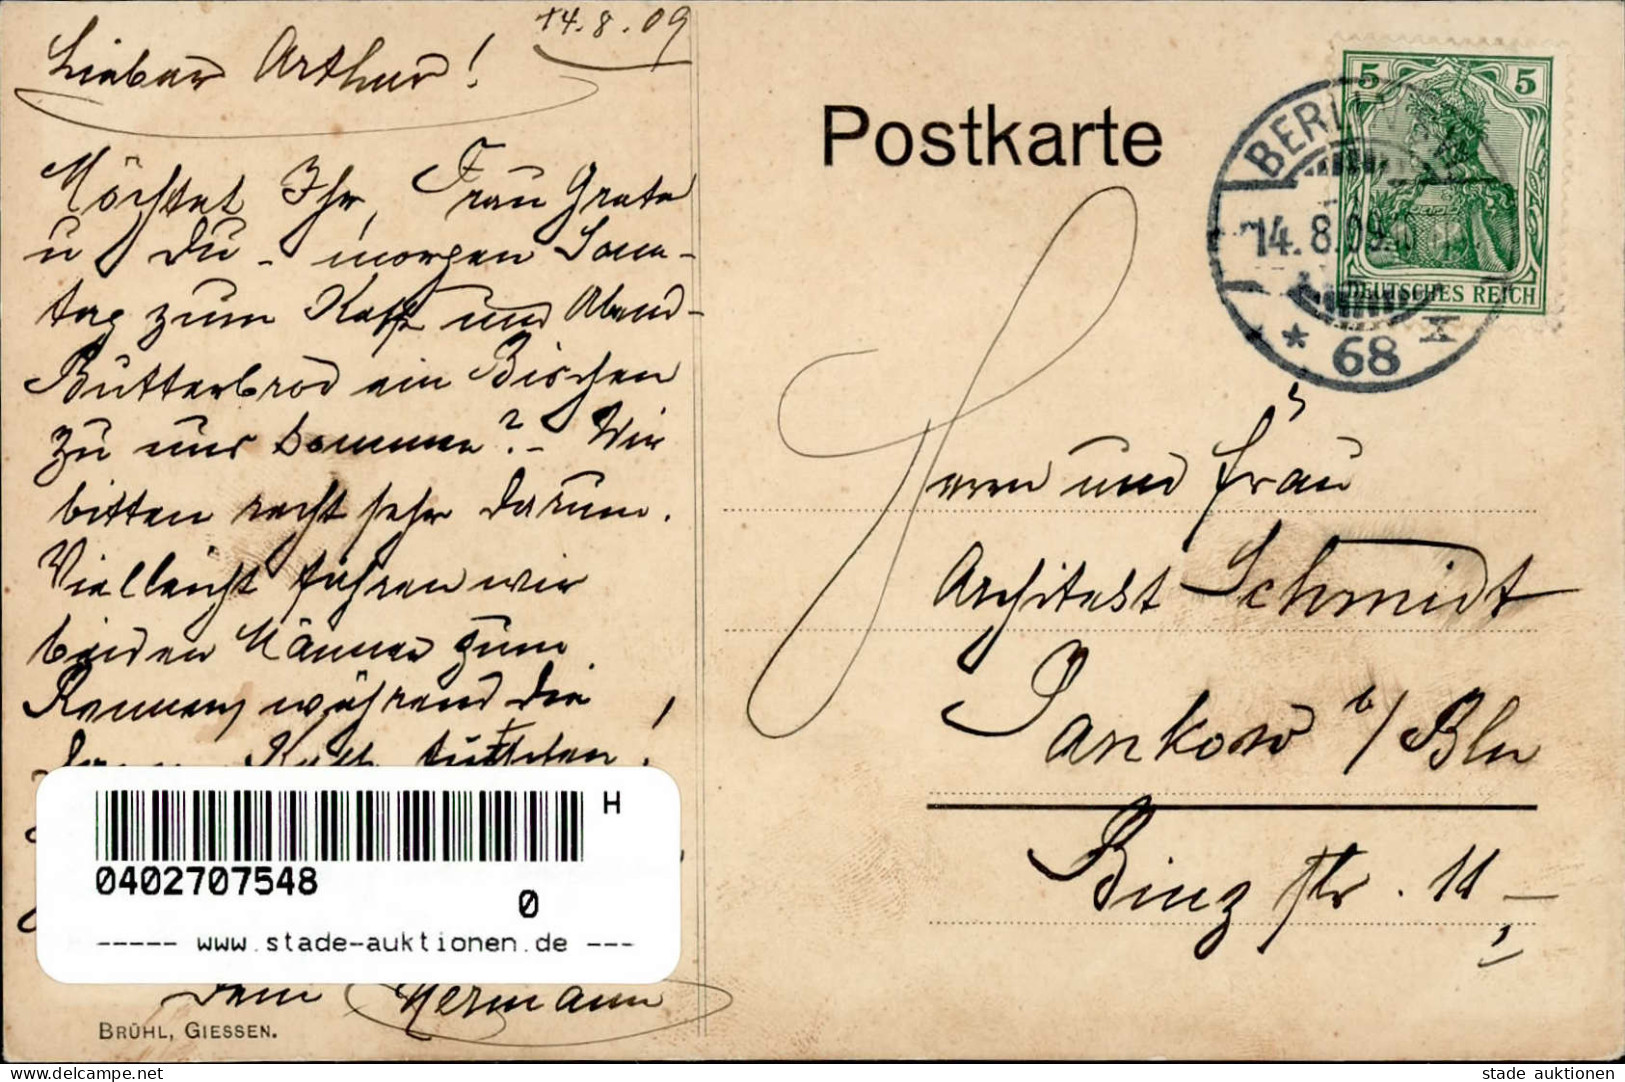 14.8.09
Lieber Arthur!
Möchtet Ihr, Frau Grete
u Du - morgen Sonn-
tag zum Kaffe und Abend-
Butterbrod ein Bischen
zu uns kommen? - Wir
bitten recht sehr darum.
Vielleicht fahren wir
beiden Männer zum
Rennen, während die
Kaffe
Dein Hermann
BRÜHL, GIESSEN.
0402707548
H
0
----- www.stade-auktionen.de ---
Postkarte
5 5
DEUTSCHES REICH
BERLIN
14.8.09
* 68
Herrn und Frau
Architekt Schmidt
Pankow b/Bln
Binz str. 11
stade auktionen
delcampe.net